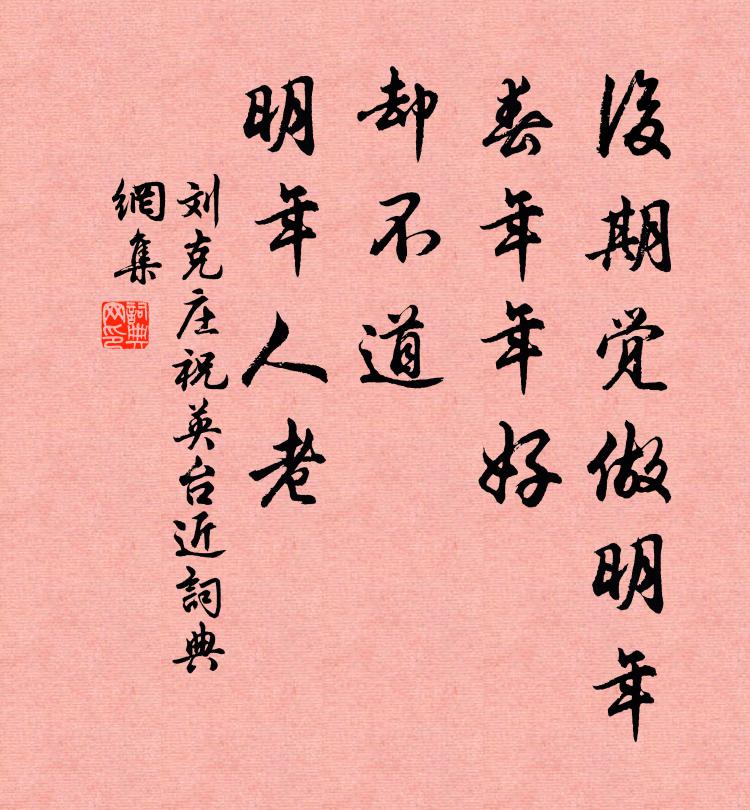 後期觉做明年
春年年好
却不道
明年人老
刘克庄祝英台近詞典
網集
詞典
网印